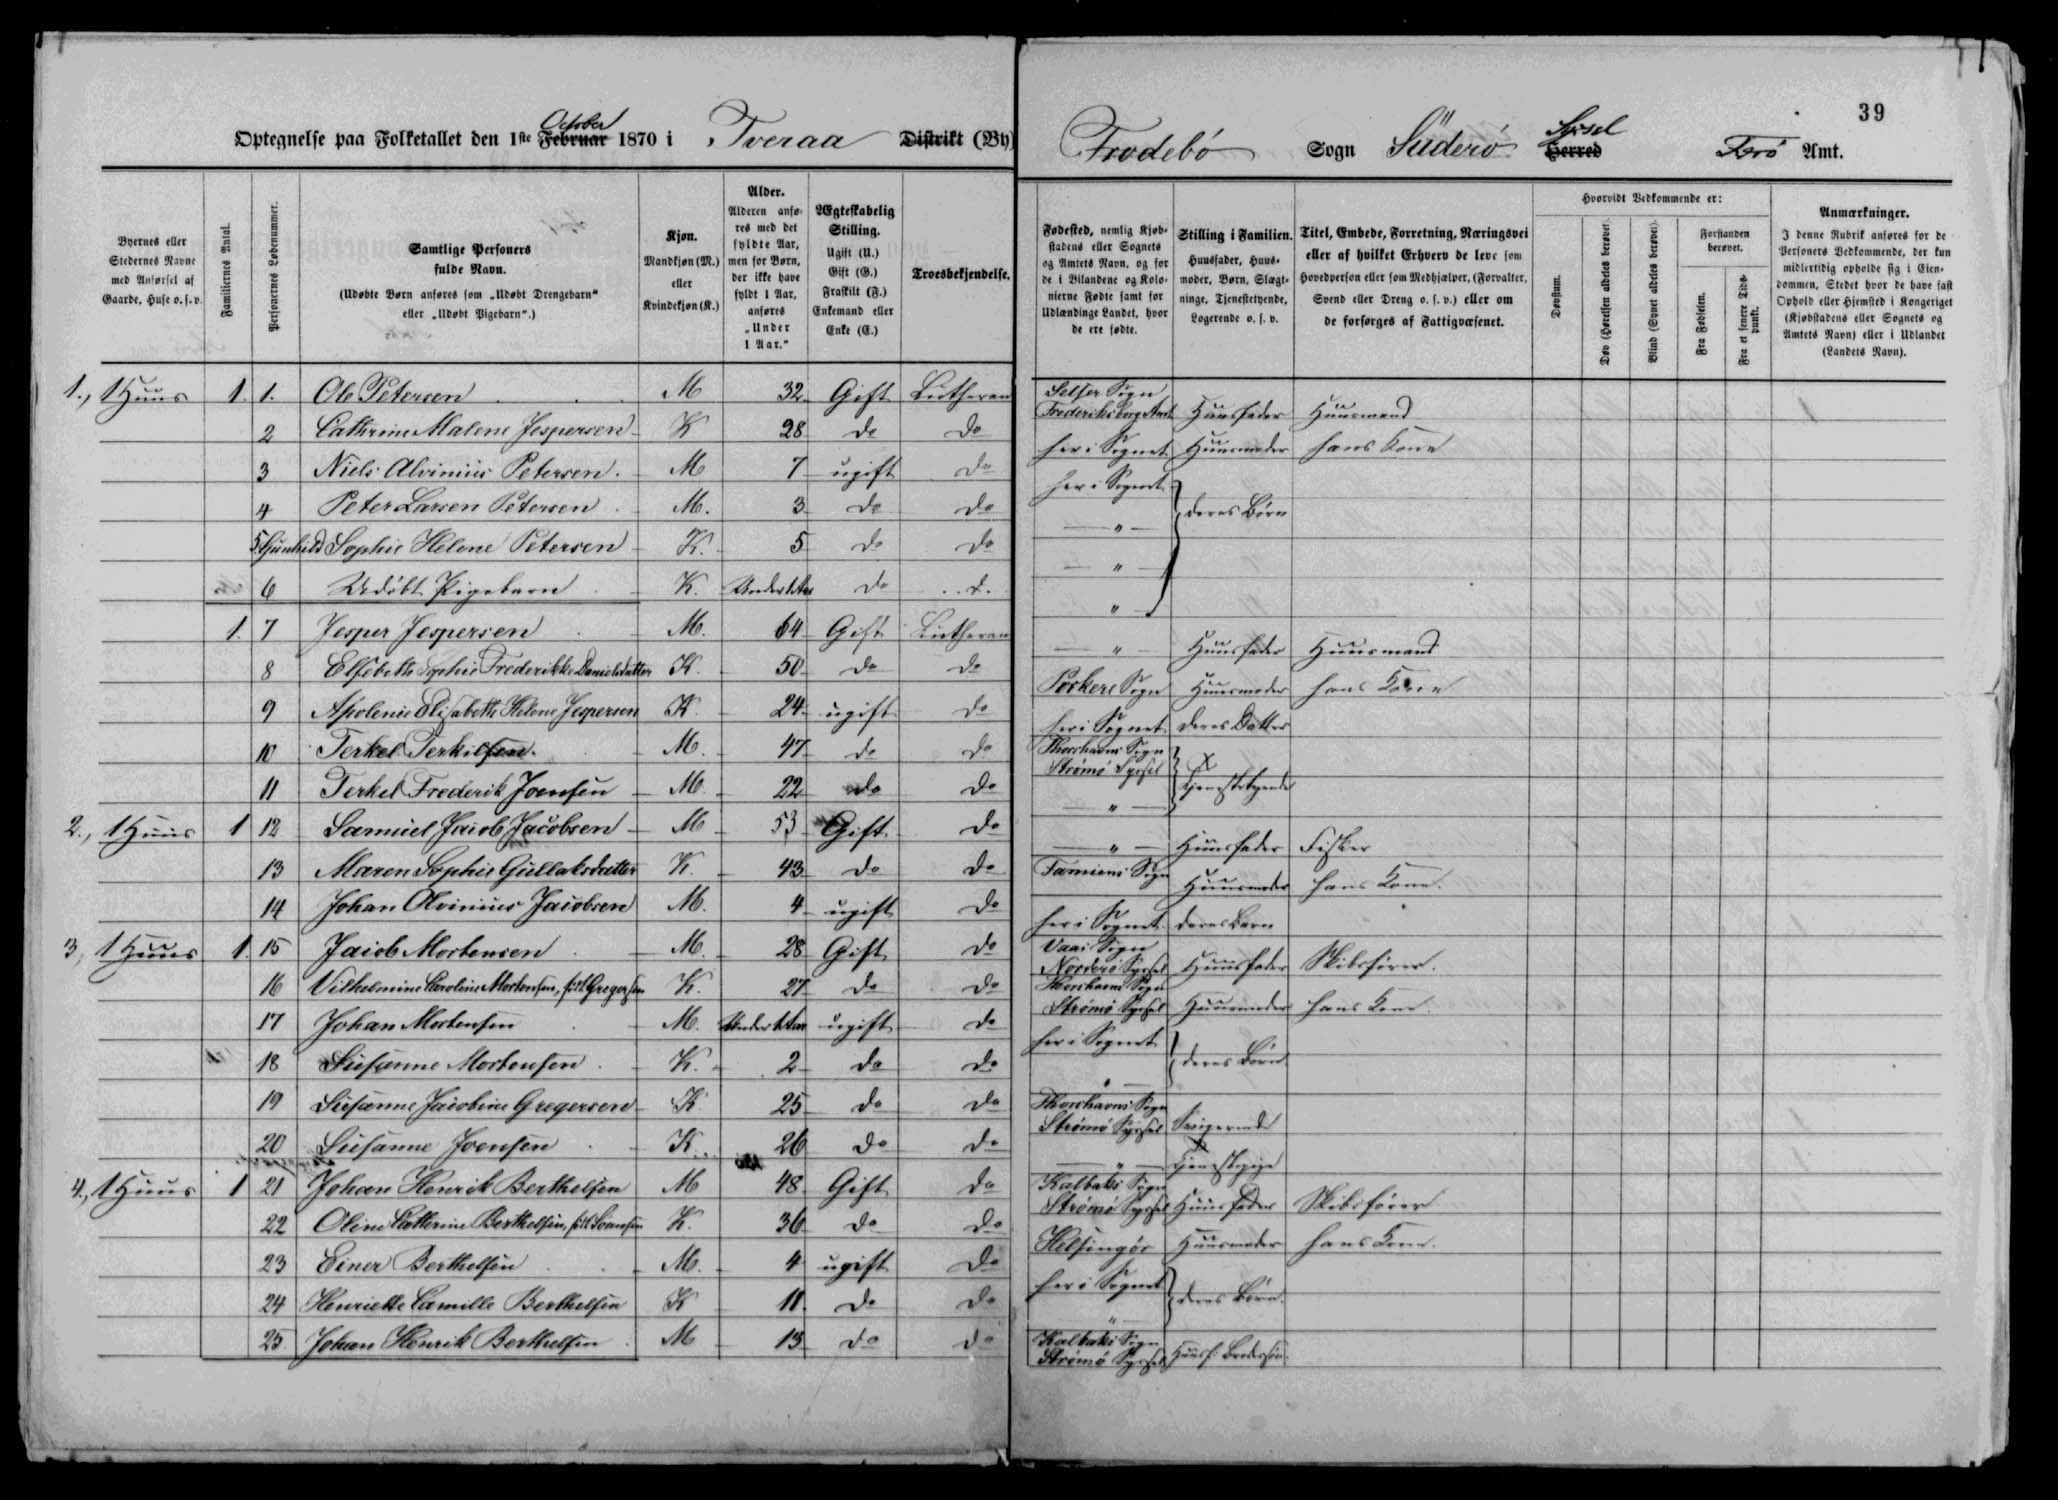 Optegnelse paa Folketallet den 1ste Februar October 1870 i Tveraa Distrikt (By)
Byernes eller Stedernes Navne med Anførsel af Gaarde, Huse o. s. v.
Familiernes Antal.
Personernes Løbenummer.
Samtlige Personers fulde Navn.
(Udøbte Børn anføres som „Udøbt Drengebarn“ eller „Udøbt Pigebarn“.)
Kjøn.
Mandkjøn (M.) eller Kvindekjøn (K.)
Alder.
Alderen anføres med det fyldte Aar, men for Børn, der ikke have fyldt 1 Aar, anføres „Under 1 Aar.“
Ægteskabelig Stilling.
Ugift (U.) Gift (G.) Fraskilt (F.) Enkemand eller Enke (E.)
Troesbekjendelse.
1., 1 Huus 1. 1. Ole Petersen M 32 Gift Lutheran
2 Cathrine Malene Jespersen K 28 do do
3 Niels Alvinius Petersen. M 7 ugift do
4 Peter Larsen Petersen M. 3 do do
5 Gunhild Sophie Helene Petersen K. 5 do do
6 Udøbt Pigebarn K. Under 1 Aar do
1. 7 Jesper Jespersen M. 64 Gift Lutheran
8 Elsebeth Sophie Frederikke Danielsdatter K. 50 do do
9 Apolenie Elisabeth Helene Jespersen K. 24 ugift do
10 Terkel Terkilsen. M. 47 do do
11 Terkel Frederik Joensen M. 22 do do
2., 1 Huus 1 12 Samuel Jacob Jacobsen M 53 Gift do
13 Maren Sophie Gullaksdatter K. 43 do do
14 Johan Alvinius Jacobsen M. 4 ugift do
3, 1 Huus 1. 15 Jacob Mortensen M. 28 Gift do
16 Vilhelmine Caroline Mortensen, født Gregersen K. 27 do do
17 Johan Mortensen M. Under 1 Aar ugift do
18 Susanne Mortensen K. 2 do do
19 Susanne Jacobine Gregersen K 25 do do
20 Susanne Joensen K. 26 do do
4., 1 Huus 1 21 Johan Henrik Berthelsen M 48 Gift do
22 Oline Cathrine Berthelsen, født K. 36 do do
23 Einer Berthelsen M. 4 ugift do
24 Henriette Camille Berthelsen K 11. do do
25. Johan Henrik Berthelsen M 13 do do
39
Frodebø Sogn Süderø Herred Syssel Færø Amt.
Fødested, nemlig Kjøbstadens eller Sognets og Amtets Navn, og for de i Bilandene og Kolonierne Fødte samt for Udlændinge Landet, hvor de ere fødte.
Stilling i Familien.
Huusfader, Huusmoder, Børn, Slægtninge, Tjenestetyende, Logerende o. s. v.
Titel, Embede, Forretning, Næringsvei eller af hvilket Erhverv de leve som Hovedperson eller som Medhjælper, (Forvalter, Svend eller Dreng o. s. v.) eller om de forsørges af Fattigvæsenet.
Hvorvidt Vedkommende er:
Døvstum.
Døv (Hørelsen aldeles berøvet)
Blind (Synet aldeles berøvet)
Forstanden berøvet.
Fra Fødselen.
Fra et senere Tidspunkt.
Anmærkninger.
I denne Rubrik anføres for de Personers Vedkommende, der kun midlertidig opholde sig i Eiendommen, Stedet hvor de have fast Ophold eller Hjemsted i Kongeriget (Kjøbstadens eller Sognets og Amtets Navn) eller i Udlandet (Landets Navn).
Selsø Sogn
Frederiksborg Amt Huusfader Huusmand
her i Sognet Huusmoder hans Kone
her i Sognet
— " — deres Børn
— " —
"
— " — Huusfader Huusmand
Porkere Sogn Huusmoder hans Kone
her i Sognet deres Datter
Thorshavns Sogn
Strømø Syssel Tjenestetyende
— " —
— " — Huusfader Fisker
Famiens Sogn Huusmoder hans Kone.
her i Sognet deres Barn
Vaai Sogn
Norderø Syssel Huusfader Skibsfører.
Thorshavns Sogn
Strømø Syssel Huusmoder hans Kone
her i Sognet
deres Børn
Thorshavns Sogn
Strømø Syssel
— " — Tjenestepige
Kalbaks Sogn
Strømø Syssel Huusfader Skibsfører
Helsingør Huusmoder hans Kone.
her i Sognet
" deres Børn.
Kalbaks Sogn
Strømø Syssel Huusf. Brodersøn.